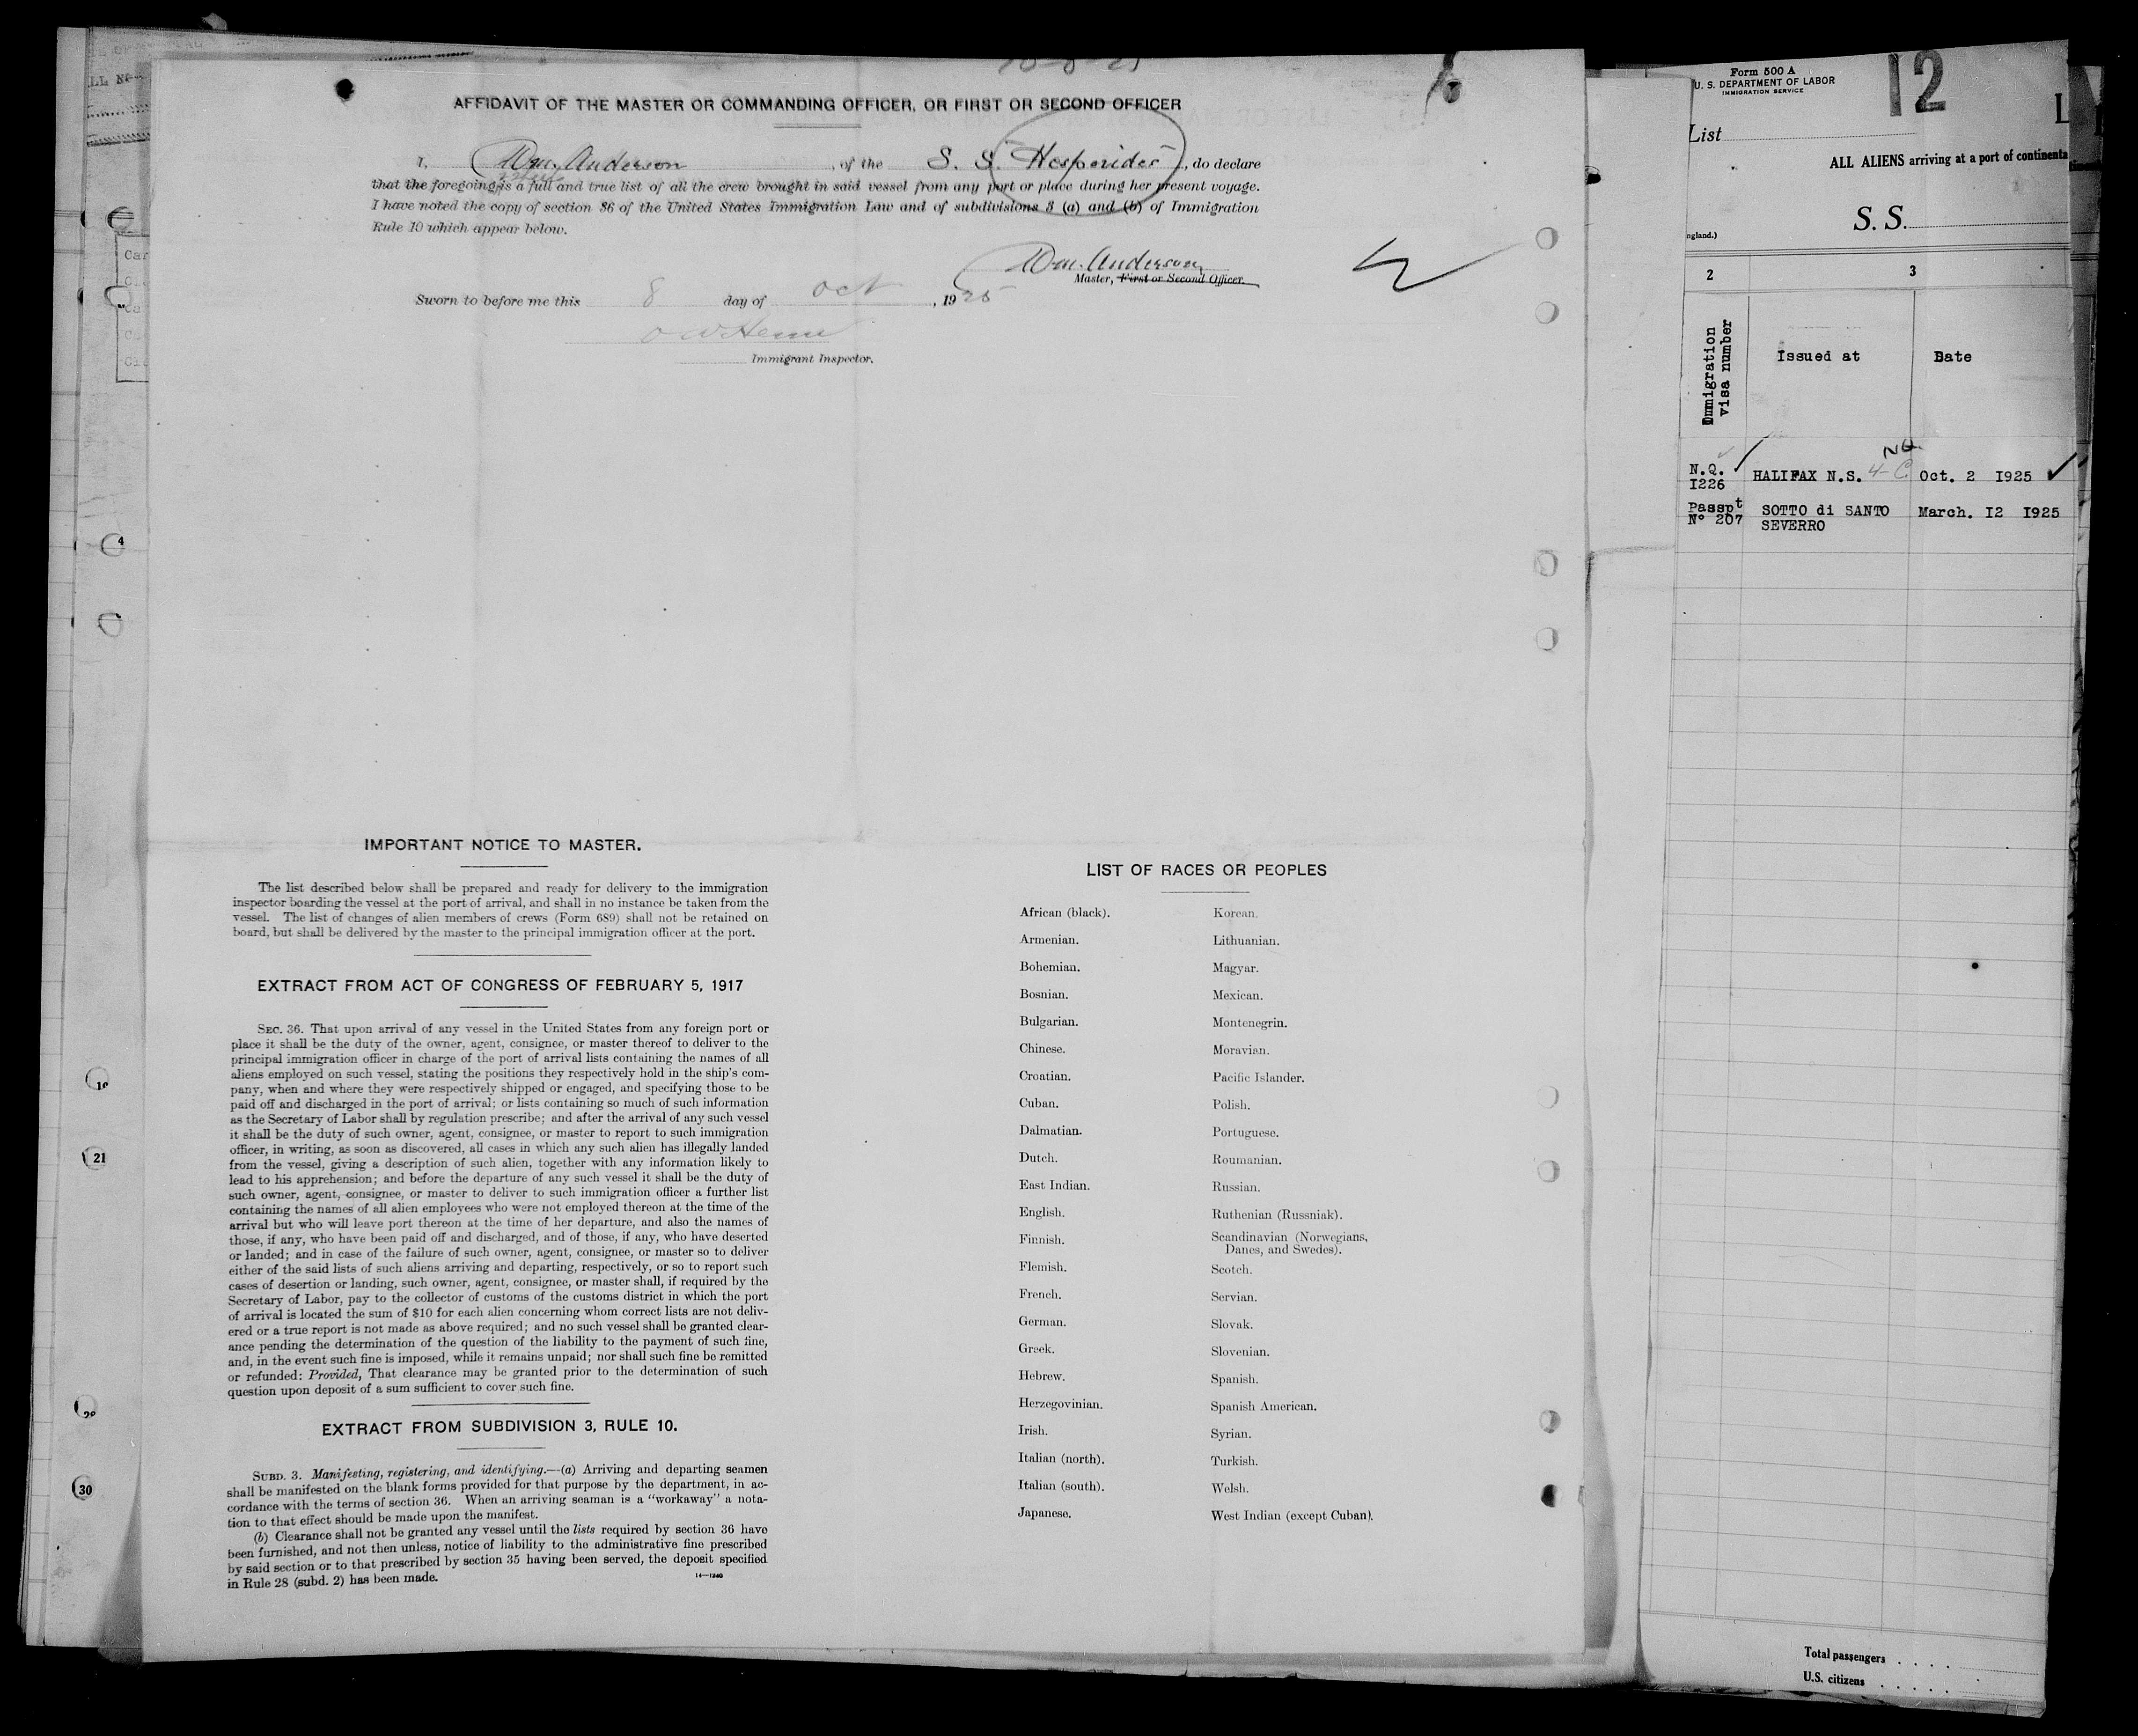 10-8-25
AFFIDAVIT OF THE MASTER OR COMMANDING OFFICER, OR FIRST OR SECOND OFFICER
I, Wm. Anderson, of the S. S. Hesperides, do declare
that the foregoing is a full and true list of all the crew brought in said vessel from any port or place during her present voyage.
I have noted the copy of section 36 of the United States Immigration Law and of subdivisions 3 (a) and (b) of Immigration
Rule 10 which appear below.
Wm. Anderson
Master, First or Second Officer.
Sworn to before me this 8 day of Oct, 1925
Immigrant Inspector.
IMPORTANT NOTICE TO MASTER.
The list described below shall be prepared and ready for delivery to the immigration
inspector boarding the vessel at the port of arrival, and shall in no instance be taken from the
vessel. The list of changes of alien members of crews (Form 689) shall not be retained on
board, but shall be delivered by the master to the principal immigration officer at the port.
EXTRACT FROM ACT OF CONGRESS OF FEBRUARY 5, 1917
SEC. 36. That upon arrival of any vessel in the United States from any foreign port or
place it shall be the duty of the owner, agent, consignee, or master thereof to deliver to the
principal immigration officer in charge of the port of arrival lists containing the names of all
aliens employed on such vessel, stating the positions they respectively hold in the ship's com-
pany, when and where they were respectively shipped or engaged, and specifying those to be
paid off and discharged in the port of arrival; or lists containing so much of such information
as the Secretary of Labor shall by regulation prescribe; and after the arrival of any such vessel
it shall be the duty of such owner, agent, consignee, or master to report to such immigration
officer, in writing, as soon as discovered, all cases in which any such alien has illegally landed
from the vessel, giving a description of such alien, together with any information likely to
lead to his apprehension; and before the departure of any such vessel it shall be the duty of
such owner, agent, consignee, or master to deliver to such immigration officer a further list
containing the names of all alien employees who were not employed thereon at the time of the
arrival but who will leave port thereon at the time of her departure, and also the names of
those, if any, who have been paid off and discharged, and of those, if any, who have deserted
or landed; and in case of the failure of such owner, agent, consignee, or master so to deliver
either of the said lists of such aliens arriving and departing, respectively, or so to report such
cases of desertion or landing, such owner, agent, consignee, or master shall, if required by the
Secretary of Labor, pay to the collector of customs of the customs district in which the port
of arrival is located the sum of $10 for each alien concerning whom correct lists are not deliv-
ered or a true report is not made as above required; and no such vessel shall be granted clear-
ance pending the determination of the question of the liability to the payment of such fine,
and, in the event such fine is imposed, while it remains unpaid; nor shall such fine be remitted
or refunded: Provided, That clearance may be granted prior to the determination of such
question upon deposit of a sum sufficient to cover such fine.
EXTRACT FROM SUBDIVISION 3, RULE 10.
SUBD. 3. Manifesting, registering, and identifying.—(a) Arriving and departing seamen
shall be manifested on the blank forms provided for that purpose by the department, in ac-
cordance with the terms of section 36. When an arriving seaman is a "workaway" a nota-
tion to that effect should be made upon the manifest.
(b) Clearance shall not be granted any vessel until the lists required by section 36 have
been furnished, and not then unless, notice of liability to the administrative fine prescribed
by said section or to that prescribed by section 35 having been served, the deposit specified
in Rule 28 (subd. 2) has been made.
14—1240
LIST OF RACES OR PEOPLES
African (black).
Armenian.
Bohemian.
Bosnian.
Bulgarian.
Chinese.
Croatian.
Cuban.
Dalmatian.
Dutch.
East Indian.
English.
Finnish.
Flemish.
French.
German.
Greek.
Hebrew.
Herzegovinian.
Irish.
Italian (north).
Italian (south).
Japanese.
Korean.
Lithuanian.
Magyar.
Mexican.
Montenegrin.
Moravian.
Pacific Islander.
Polish.
Portuguese.
Roumanian.
Russian.
Ruthenian (Russniak).
Scandinavian (Norwegians,
Danes, and Swedes).
Scotch.
Servian.
Slovak.
Slovenian.
Spanish.
Spanish American.
Syrian.
Turkish.
Welsh.
West Indian (except Cuban).
4
21
30
Form 500 A
U. S. DEPARTMENT OF LABOR
IMMIGRATION SERVICE
12
List
ALL ALIENS arriving at a port of continenta
S. S.
ngland.)
2 3
Immigration
visa number
Issued at Date
N.Q.
I226
HALIFAX N.S. 4-C NQ Oct. 2 I925
Passpt
Nº 207
SOTTO di SANTO March. I2 I925
SEVERRO
Total passengers
U.S. citizens